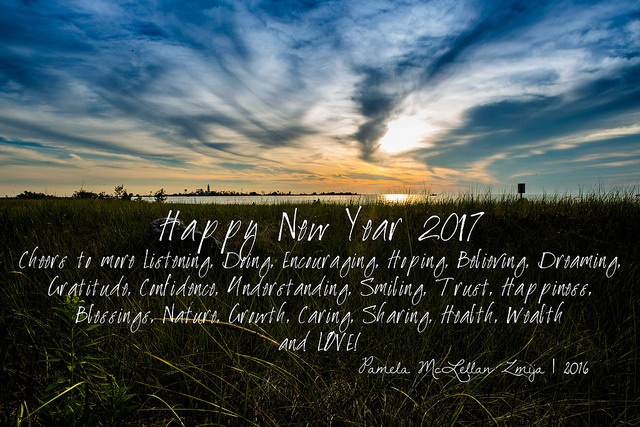 Happy New Year 2017
Cheers to more Listening, Doing, Encouraging, Hoping, Believing, Dreaming,
Gratitude, Confidence, Understanding, Smiling, Trust, Happiness,
Blessings, Nature, Growth, Caring, Sharing, Health, Wealth
and LOVE!
Pamela McLellan Zmija | 2016